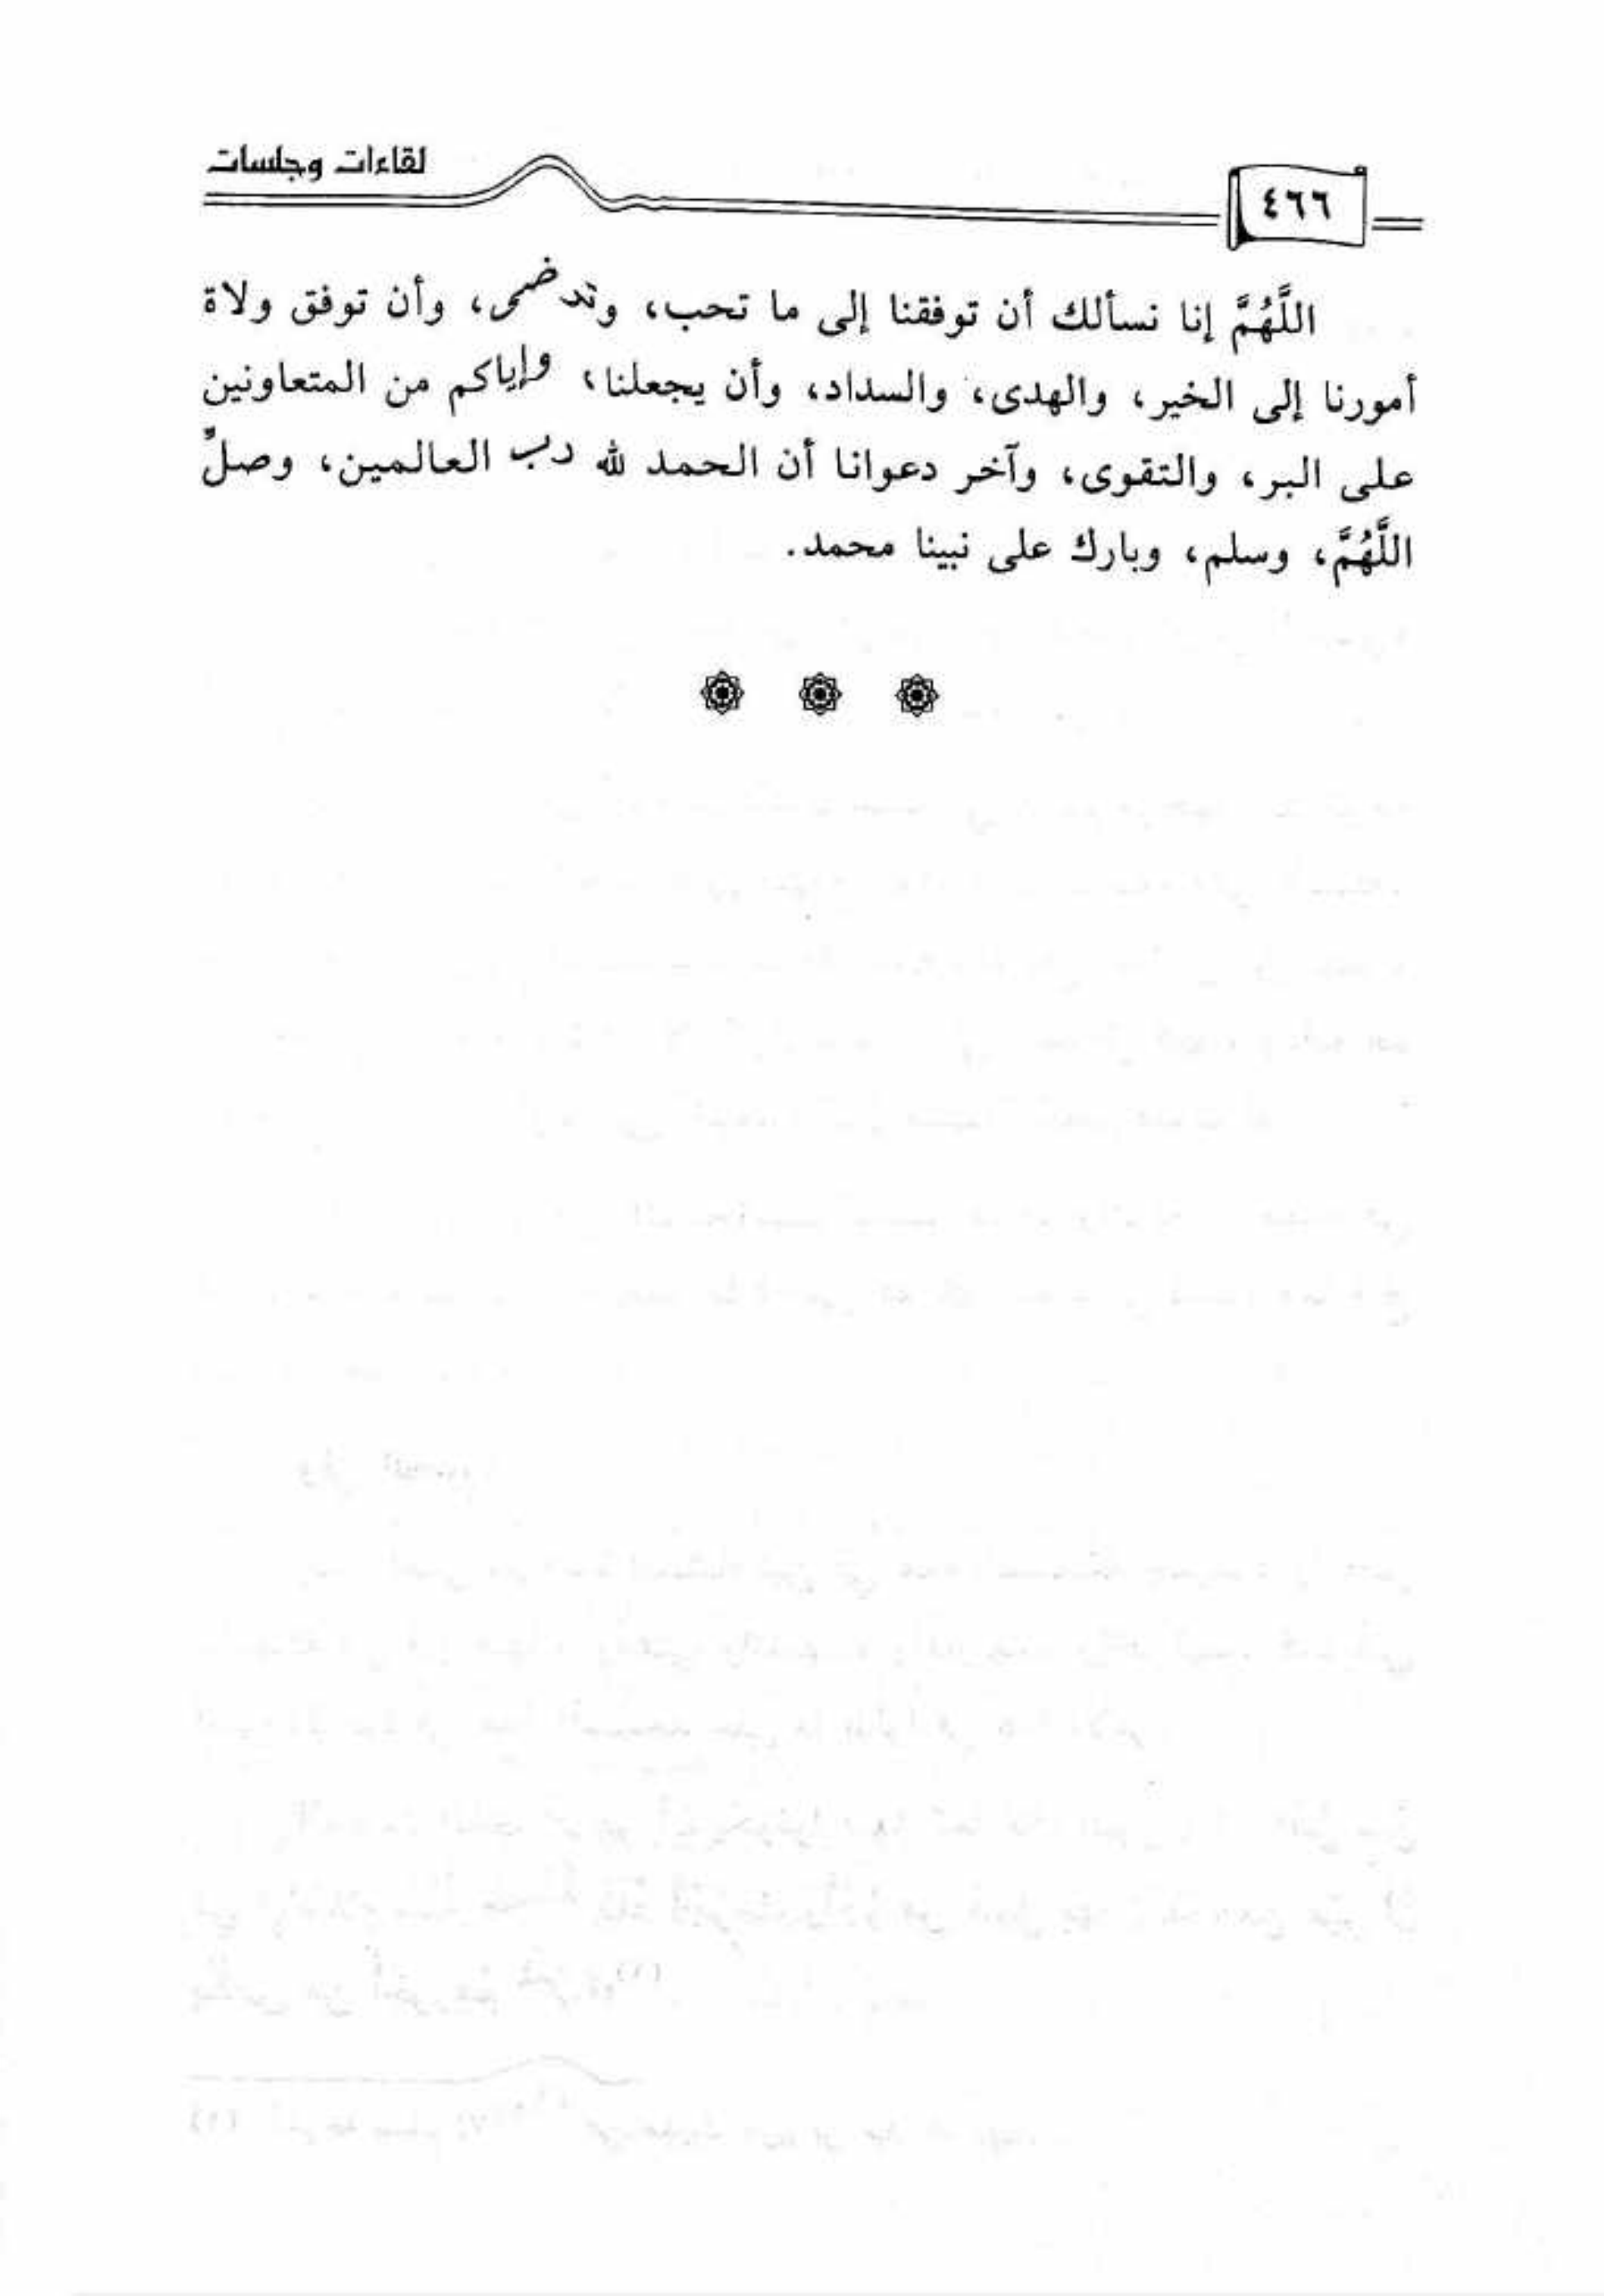 لقاءات وجلسات
٤٦٦
اللَّهُمَّ إنا نسألك أن توفقنا إلى ما تحب، وترضى، وأن توفق ولاة
أمورنا إلى الخير، والهدى، والسداد، وأن يجعلنا، وإياكم من المتعاونين
على البر، والتقوى، وآخر دعوانا أن الحمد لله رب العالمين، وصلِّ
اللَّهُمَّ، وسلم، وبارك على نبينا محمد.